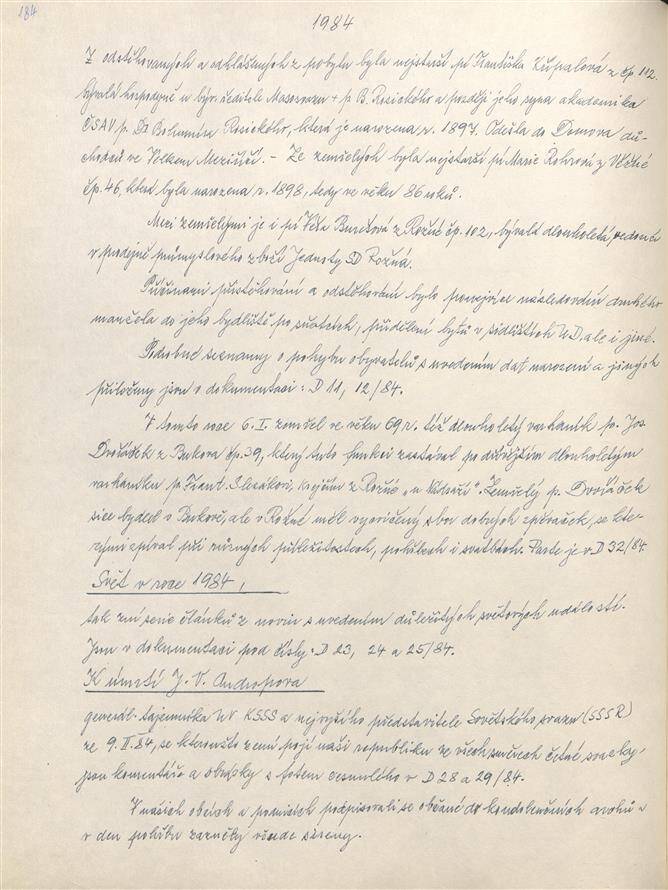 184
1984
Z odstěhovaných a odhlášených z pobytu byla nejstarší pí Františka Kupalová z čp 102
bývalá hospodyně u býv. ředitele Masosvazu + p B. Rosického a později jeho syna akademika
ČSAV p. Dr Bohumíra Rosického, která je narozena r. 1897. Odešla do Domova dů-
chodců ve Velkém Meziříčí. - Ze zemřelých byla nejstarší pí Marie Rohrová z
čp. 46, která byla narozena r. 1898, tedy ve věku 86 roků.
Mezi zemřelými je i pí Věra Burešová z Rožné čp. 102, bývalá dlouholetá vedoucí
v prodejně průmyslového zboží Jednoty SD Rožná.
Příčinami přistěhování a odstěhování bylo ponejvíce následování druhého
manžela do jeho bydliště po svatbách, přidělení bytů v sídlištích UD, ale i jiné.
Podrobné seznamy o pohybu obyvatelů s uvedením dat narození a jiných
přiloženy jsou v dokumentaci: D 11, 12/84.
V tomto roce 6. I. zemřel ve věku 69 r. též dlouholetý varhaník p. Jos
Dvořáček z Bukova čp. 39, který tuto funkci zastával po dřívějším dlouholetým
varhaníku p. Frant. Slezákovi, krejčím z Rožné „u Nádraží". Zemřelý p. Dvořáček
sice bydlel v Bukově, ale v Rožné měl vycvičený sbor dobrých zpěvaček, se kte-
rými zpíval při různých příležitostech, pohřbech i svatbách. Parte je v D 32/84.
Svět v roce 1984,
tak zní serie článků z novin s uvedením důležitých světových událostí.
Jsou v dokumentaci pod čísly: D 23, 24 a 25/84.
K úmrtí J. V. Andropova
generál. tajemníka ÚV KSSS a nejvyššího představitele Sovětského svazu (SSSR)
ze 9. II. 84, se kteroužto zemí pojí naši republiku ze všech směrech četné svazky,
jsou komentáře a obrázky s fotem zesnulého v D 28 a 29/84.
V našich obcích a podnicích podpisovali se občané do kondolenčních archů a
v den pohřbu zazněly všude sireny.